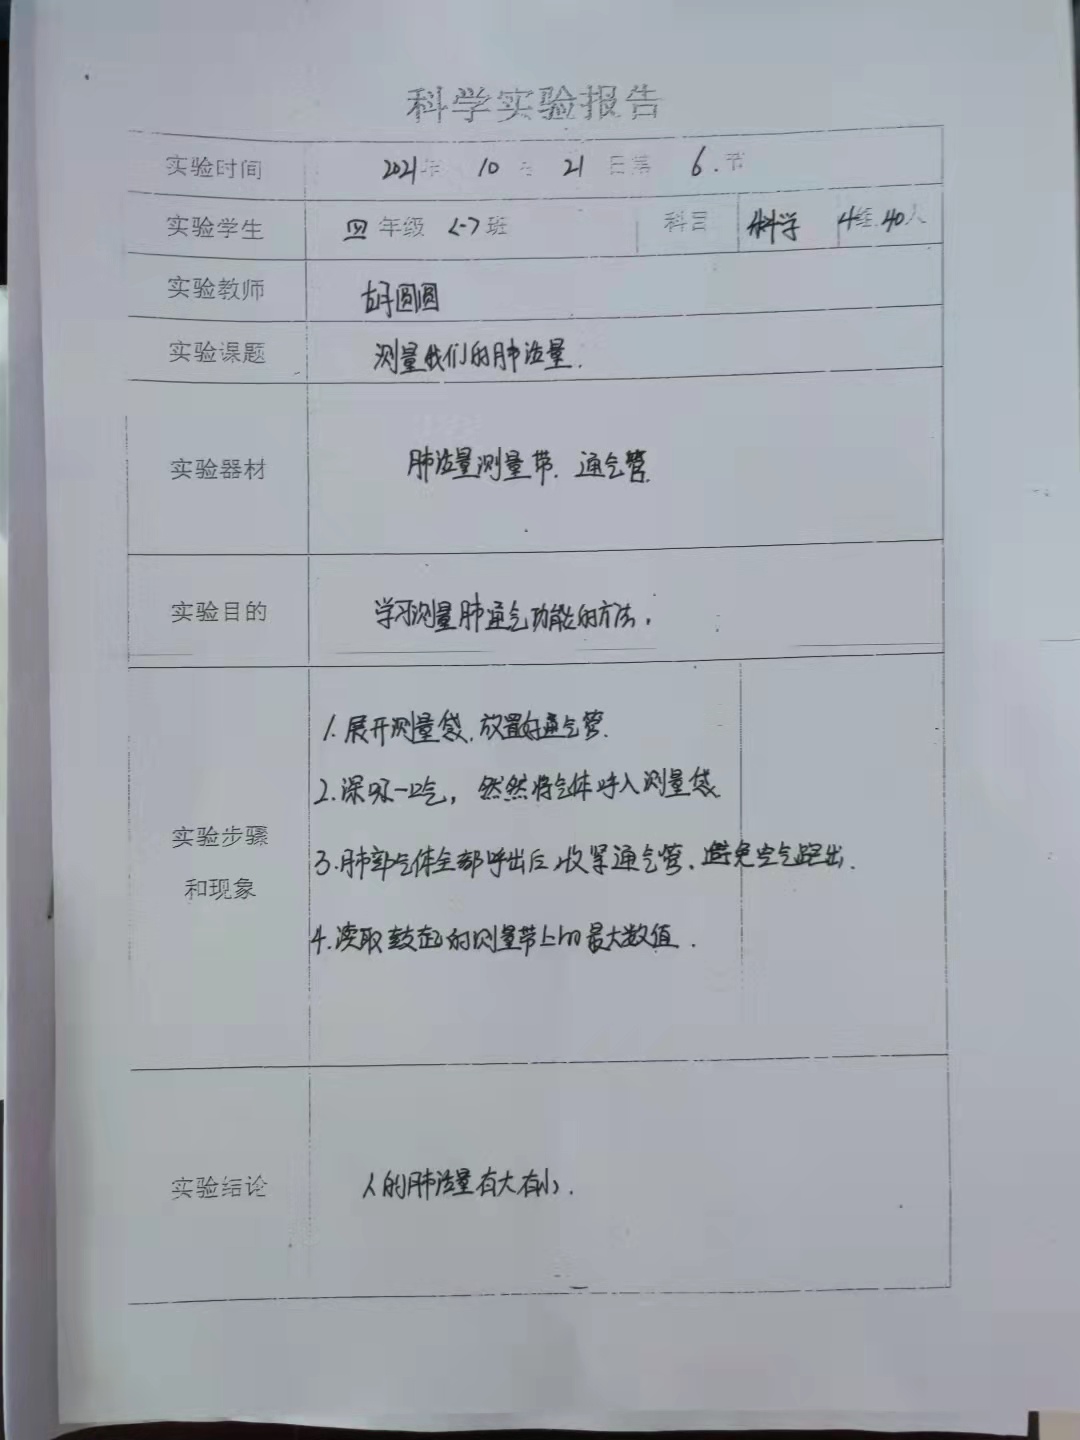 科学实验报告
实验时间 2021年 10月 21日第 6.节
实验学生 四年级 <-7班 科目 科学 4组.40人
实验教师 胡圆圆
实验课题 测量我们的肺活量.
实验器材 肺活量测量带. 通气管.
实验目的 学习测量肺通气功能的方法.
1.展开测量袋.放置好通气管.
2.深吸一口气, 然然将气体呼入测量袋.
实验步骤
3.肺部气体全部呼出后,收紧通气管.避免空气跑出.
和现象
4.读取鼓起的测量带上的最大数值.
实验结论 人的肺活量有大有小.